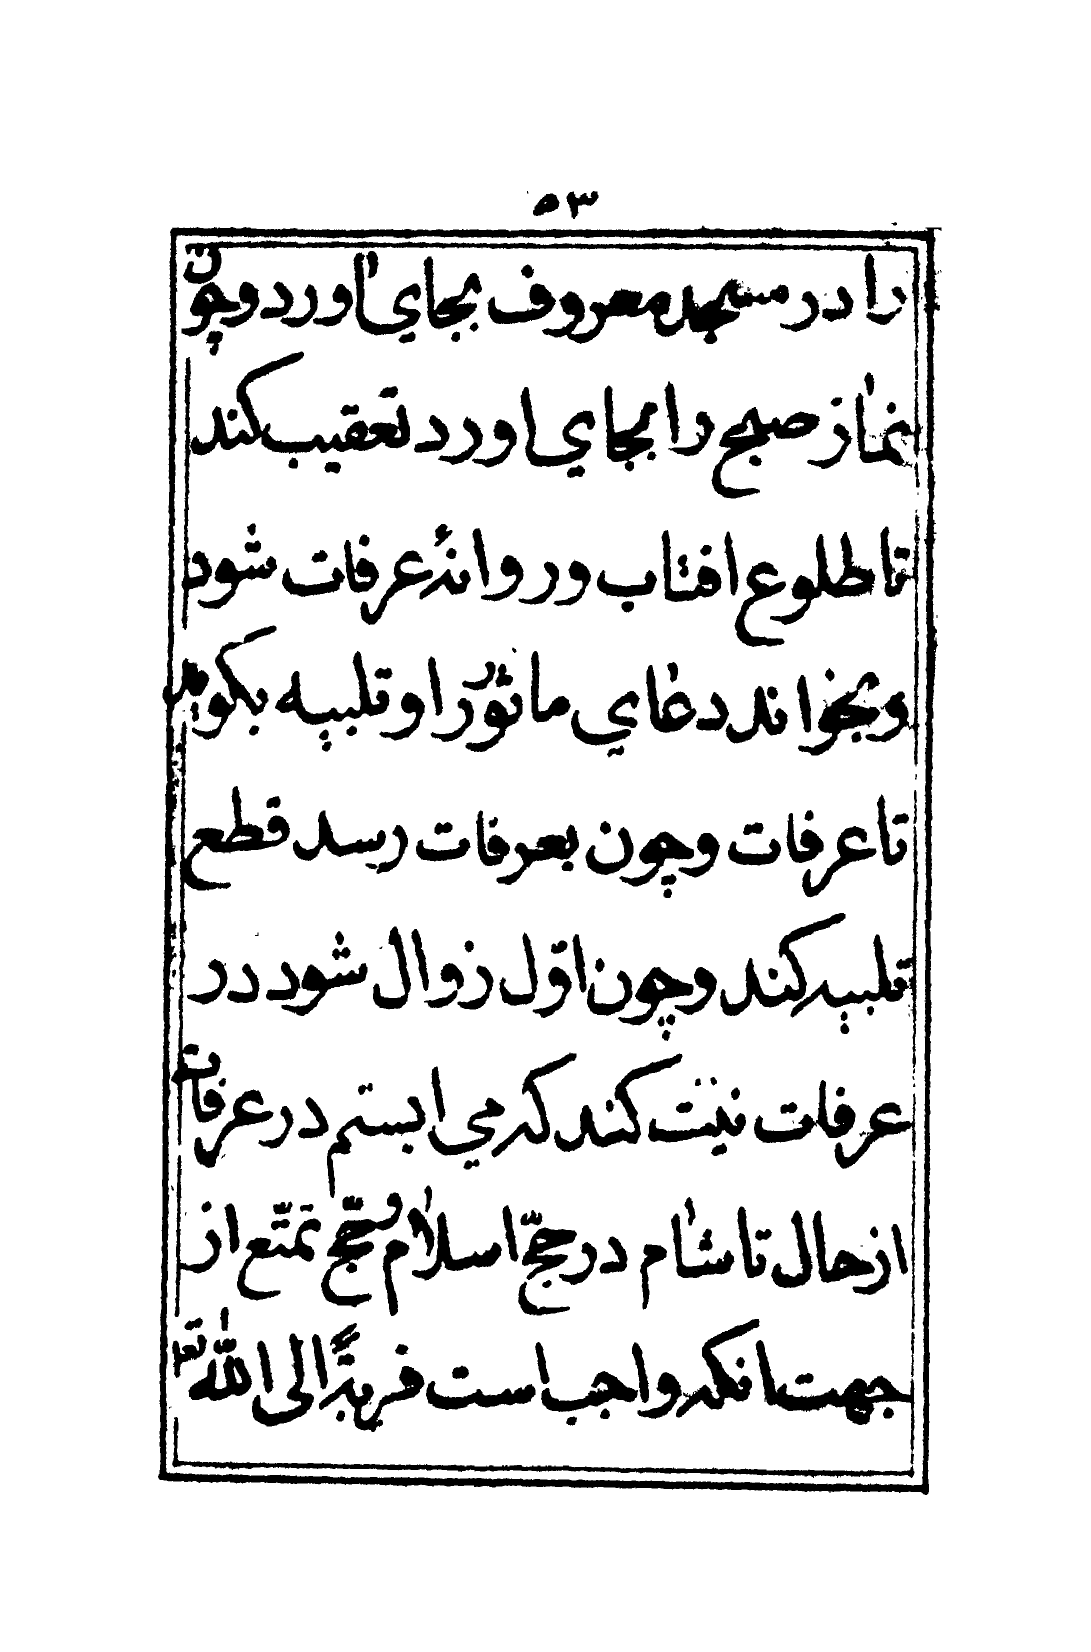 ٥٣
را در مسجد معروف بجاي اورد و چون
نماز صبح را بجاي اورد تعقیب کند
تا طلوع افتاب و روانۀ عرفات شود
و بخواند دعاي ماثور را و تلبیه بکوید
تا عرفات و چون بعرفات رسد قطع
تلبیه کند و چون اوّل زوال شود در
عرفات نیّت کند که مي ایستم در عرفات
از حال تا شام در حجّ اسلام و حجّ تمتّع از
جهت انکه واجب است قربةً الی الله تع